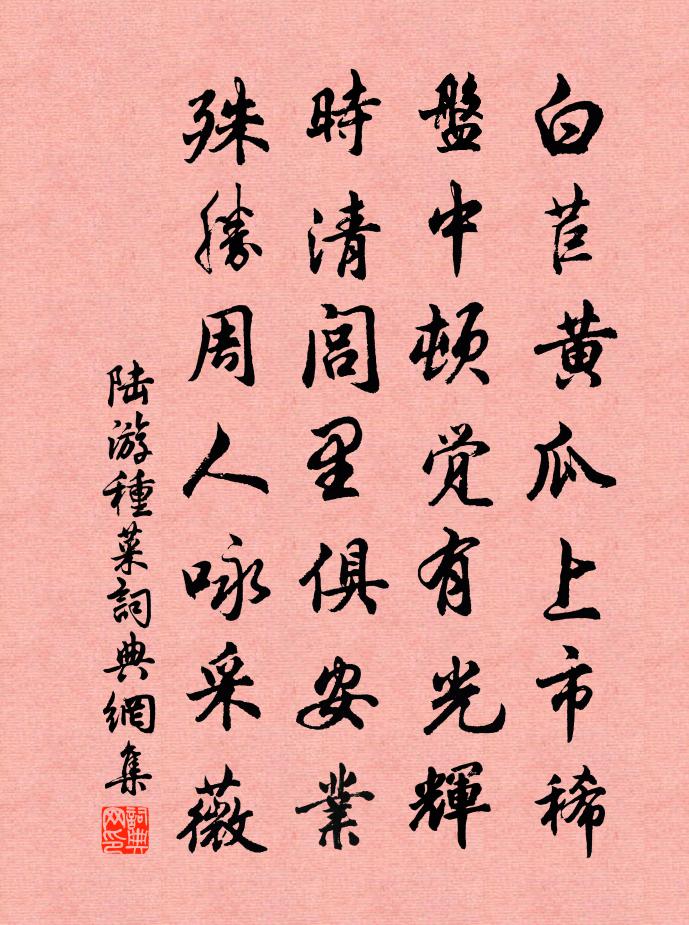 白苣黄瓜上市稀
盤中頓觉有光輝
時清閭里俱安業
殊勝周人咏采薇
陆游種菜詞典網集
詞典网印